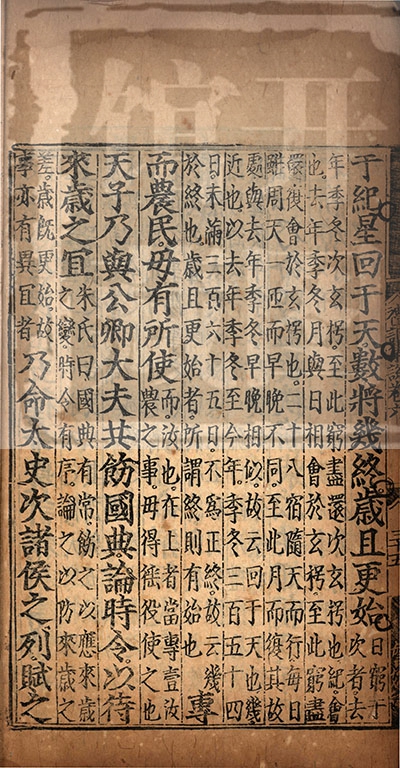 于紀星回于天數將幾終歲且更始
日窮于
次者去
年季冬次玄枵至此窮盡還次玄枵也紀會
也去年季冬月與日相會於玄枵至此窮盡
還復會於玄枵也二十八宿隨天而行每日
雖周天一匝而早晚不同至此月而復其故
處與去年季冬早晚相似故云回于天也幾
近也以去年季冬至今年季冬三百五十四
日未滿三百六十五日不爲正終故云幾
於終也歲且更始者所謂終則有始也
專
而農民毋有所使
而汝也在上者當專壹汝
農之事毋得徭役使之也
天子乃與公卿大夫共飭國典論時令以待
來歲之宜
朱氏曰國典有常飭之以應來歲
之變時令有序論之以防來歲之
差歲旣更始故
事亦有異宜者
乃命太史次諸侯之列賦之